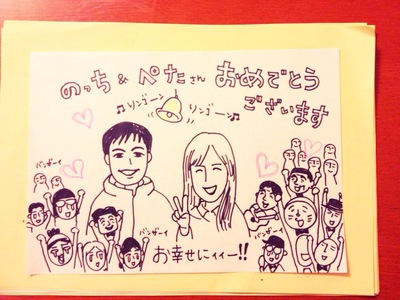 のっち & ぺたさん おめでとう
ございます
♫リンゴーン リンゴーン♫
バンザーイ
バンザーイ
バンザーイ
お幸せにィィー!!